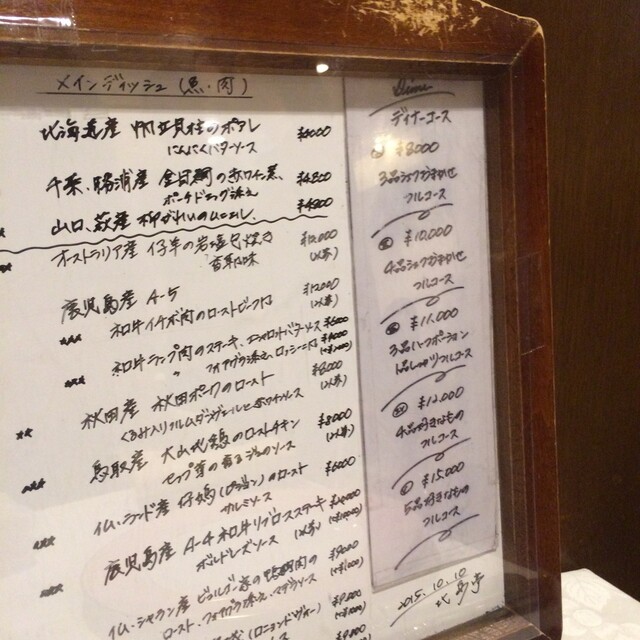 メインディッシュ (魚・肉)
北海道産 帆立貝柱のポアレ ¥6000
にんにくバターソース
千葉、勝浦産 金目鯛の赤ワイン煮、¥4800
ポーチドエッグ添え
山口、萩産 柳がれいのムニエル、¥4800
オーストラリア産 仔羊の岩塩包焼き ¥12,000
香草風味 (2人前)
鹿児島産 A-5 ¥12000
和牛イチボ肉のローストビーフ (2人前)
和牛ランプ肉のステーキ、エシャロットバターソース ¥6000
〃 フォアグラ添え、ロッシーニ風
秋田産 秋田ポークのロースト ¥8000
くるみ入りフルムダンベールと赤ワインソース (2人前)
鳥取産 大山地鶏のローストチキン ¥8000
セップ茸の香るジュのソース (2人前)
イム・ランド産 仔鳩(ピジョン)のロースト ¥6000
サルミソース
鹿児島産 A-4 和牛リブロースステーキ
ボルドレーズソース (2人前)
イム・シャラン産 ビュルゴー家の鴨胸肉の ¥9000
ロースト、フォアグラ添え、マデラソース
¥9,000
Dinner
ディナーコース
¥8000
3品シェフおまかせ
フルコース
¥10,000
4品シェフおまかせ
フルコース
¥11,000
3品ハーフポーション
フルコース
¥12,000
4品お好きなもの
フルコース
¥15,000
5品お好きなもの
フルコース
2015.10.10
北島亭